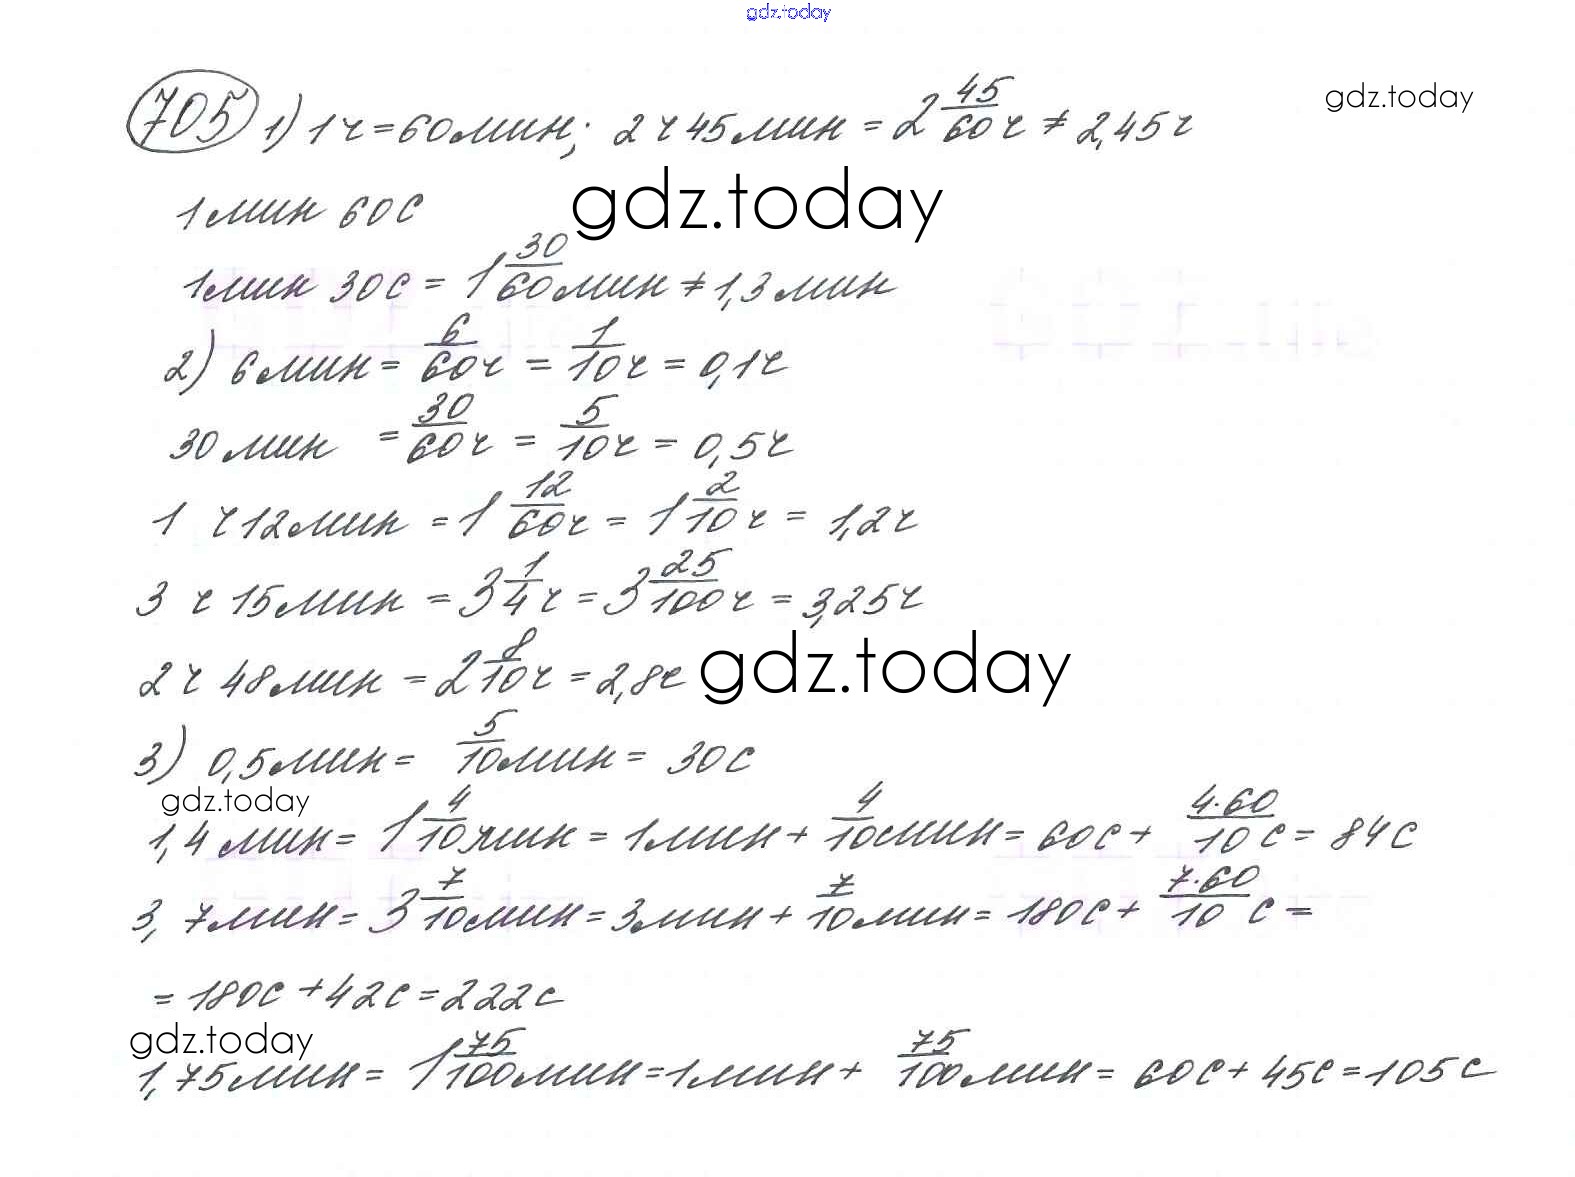 gdz.today
gdz.today
705 1) 1ч = 60мин; 2ч 45мин = 2 45/60 ч ≠ 2,45ч
1мин 60с
gdz.today
1мин 30с = 1 30/60 мин ≠ 1,3мин
2) 6мин = 6/60 ч = 1/10 ч = 0,1ч
30мин = 30/60 ч = 5/10 ч = 0,5ч
1 ч 12мин = 1 12/60 ч = 1 2/10 ч = 1,2ч
3 ч 15мин = 3 1/4 ч = 3 25/100 ч = 3,25ч
2ч 48мин = 2 8/10 ч = 2,8ч
gdz.today
3) 0,5мин = 5/10 мин = 30с
gdz.today
1,4мин = 1 4/10 мин = 1мин + 4/10 мин = 60с + 4·60/10 с = 84с
3,7мин = 3 7/10 мин = 3мин + 7/10 мин = 180с + 7·60/10 с =
= 180с + 42с = 222с
gdz.today
1,75мин = 1 75/100 мин = 1мин + 75/100 мин = 60с + 45с = 105с